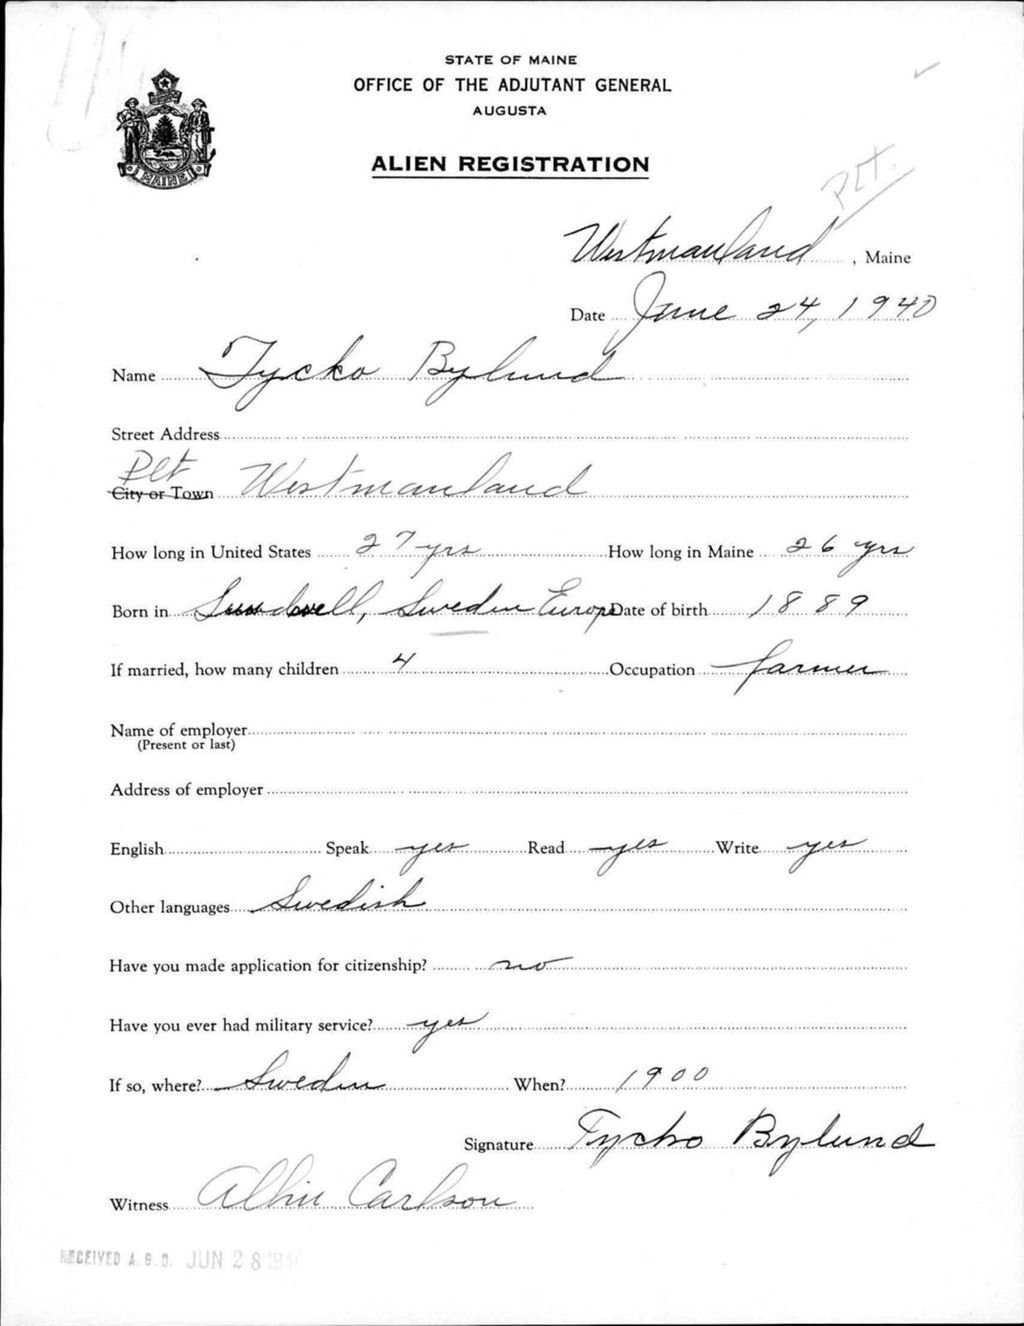 STATE OF MAINE
OFFICE OF THE ADJUTANT GENERAL
AUGUSTA
ALIEN REGISTRATION
MAINE
Plt.
Westmanland, Maine
Date June 24, 1940
Name Tycko Bylund
Street Address
Plt
City or Town Westmanland
How long in United States 27 yrs How long in Maine 26 yrs
Born in Sundsvell, Sweden Europe Date of birth 1889
If married, how many children 4 Occupation farmer
Name of employer
(Present or last)
Address of employer
English Speak yes Read yes Write yes
Other languages Swedish
Have you made application for citizenship? no
Have you ever had military service? yes
If so, where? Sweden When? 1900
Signature Tycko Bylund
Witness Carlson
RECEIVED A.G.O. JUN 28 1940